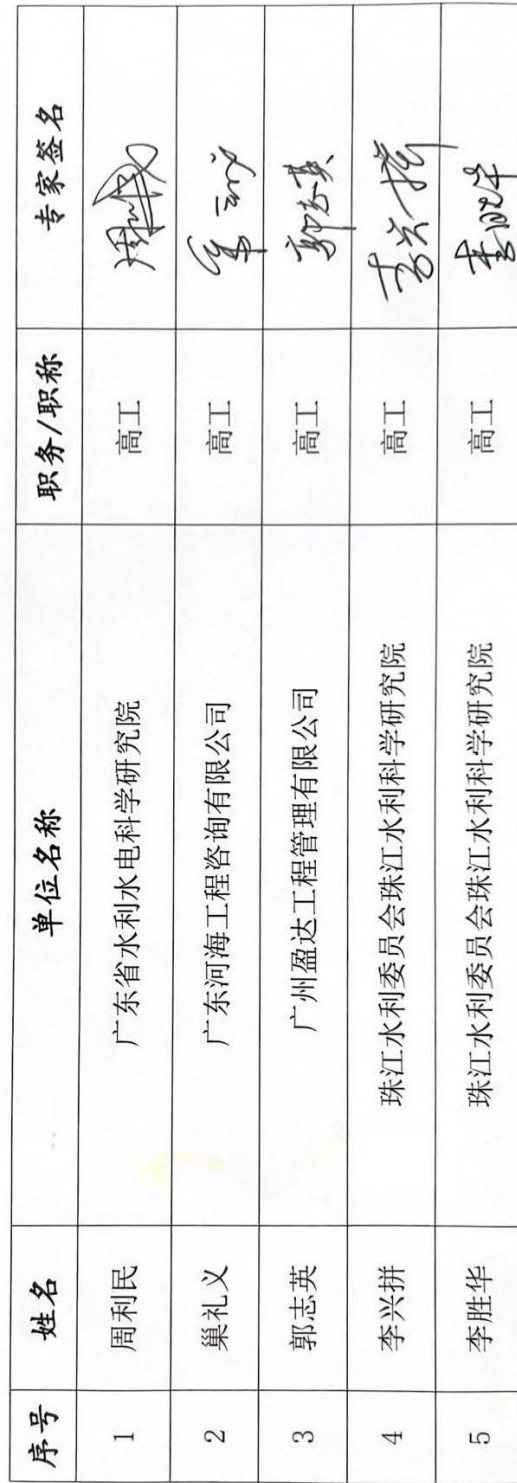 序号 姓名 单位名称 职务/职称 专家签名
1 周利民 广东省水利水电科学研究院 高工
2 巢礼义 广东河海工程咨询有限公司 高工
3 郭志英 广州盈达工程管理有限公司 高工 郭志英
4 李兴拼 珠江水利委员会珠江水利科学研究院 高工 李兴拼
5 李胜华 珠江水利委员会珠江水利科学研究院 高工 李胜华